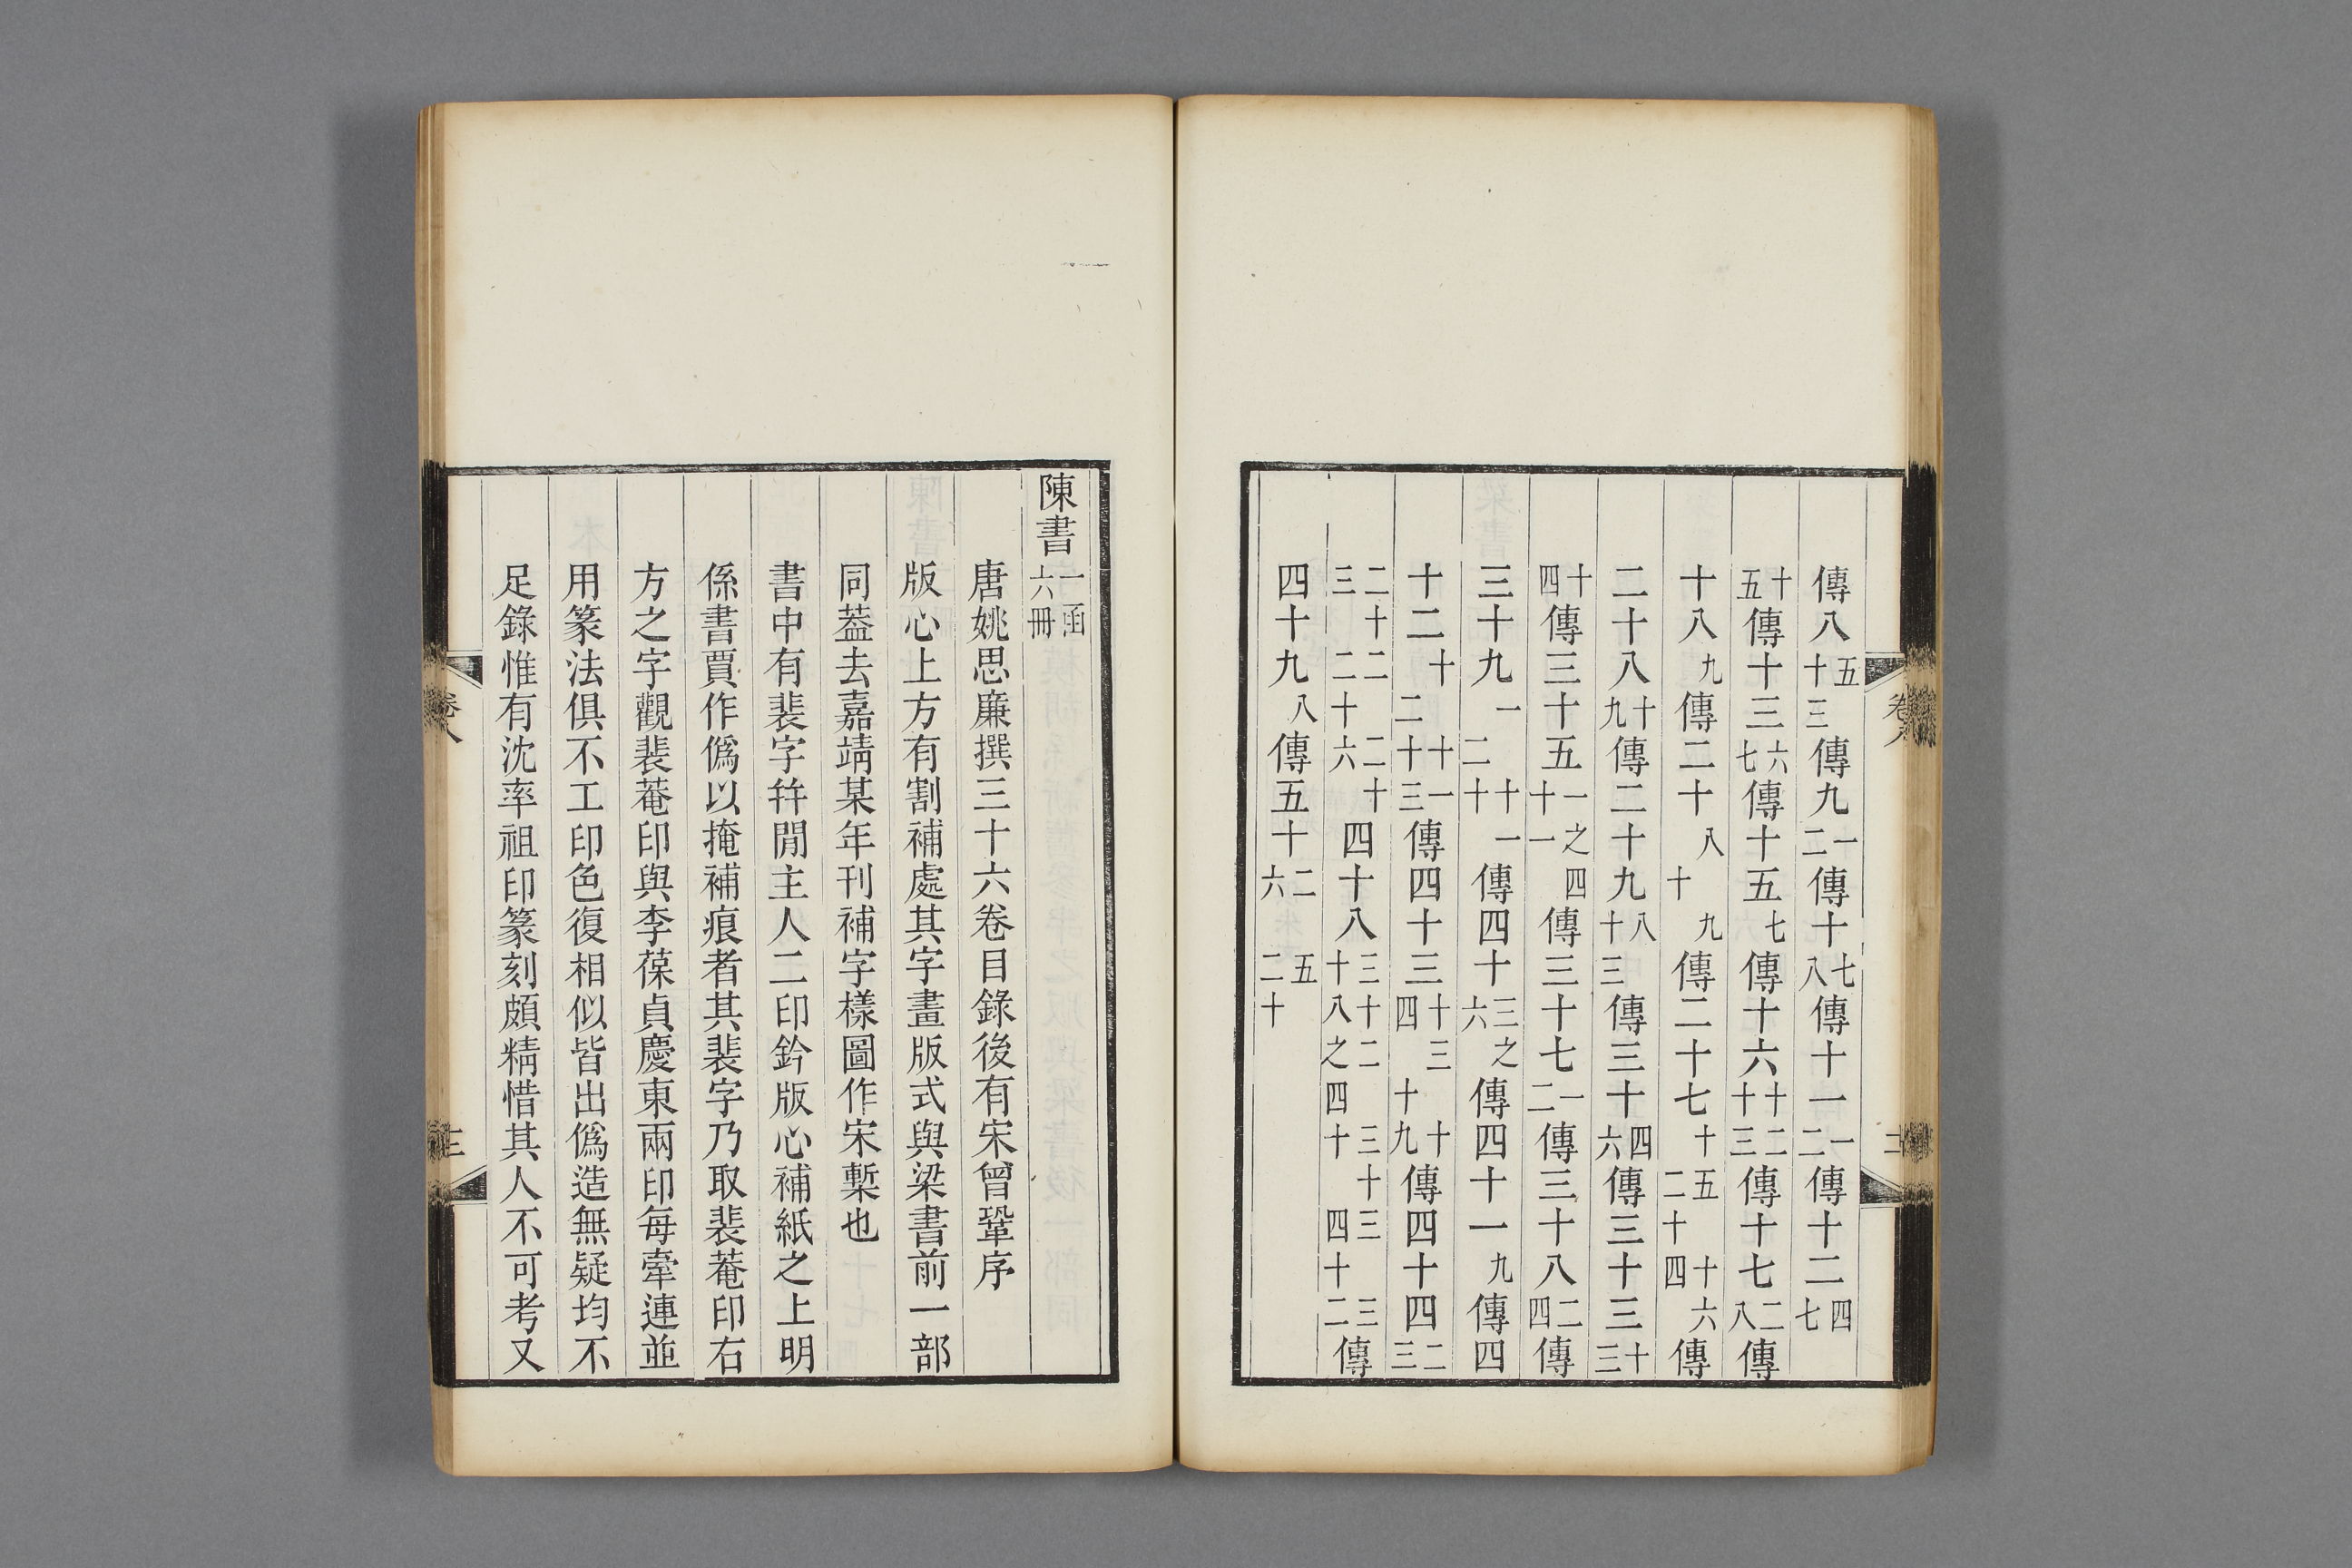 傳八五十三傳九一二傳十七八傳十一一二傳十二四七
十五傳十三六七傳十五七傳十六十二十三傳十七二八傳
十八九傳二十八九十傳二十七十五十六二十四傳
二十八十九傳二十九八十三傳三十四六傳三十三十三
十四傳三十五一之四十一傳三十七一二傳三十八二四傳
三十九一十一二十傳四十三之六傳四十一九傳四
十二十十一二十三傳四十三十三十四十九傳四十四二三
二十二二十三二十六四十八三十二三十三三十八之四十四十二傳
四十九八傳五十二五六二十
卷八
陳書一函六冊
唐姚思廉撰三十六卷目錄後有宋曾鞏序
版心上方有割補處其字畫版式與梁書前一部
同葢去嘉靖某年刊補字樣圖作宋槧也
書中有裴字幷閒主人二印鈐版心補紙之上明
係書賈作僞以掩補痕者其裴字乃取裴菴印右
方之字觀裴菴印與李葆貞慶東兩印每牽連並
用篆法俱不工印色復相似皆出僞造無疑均不
足錄惟有沈率祖印篆刻頗精惜其人不可考又
卷八